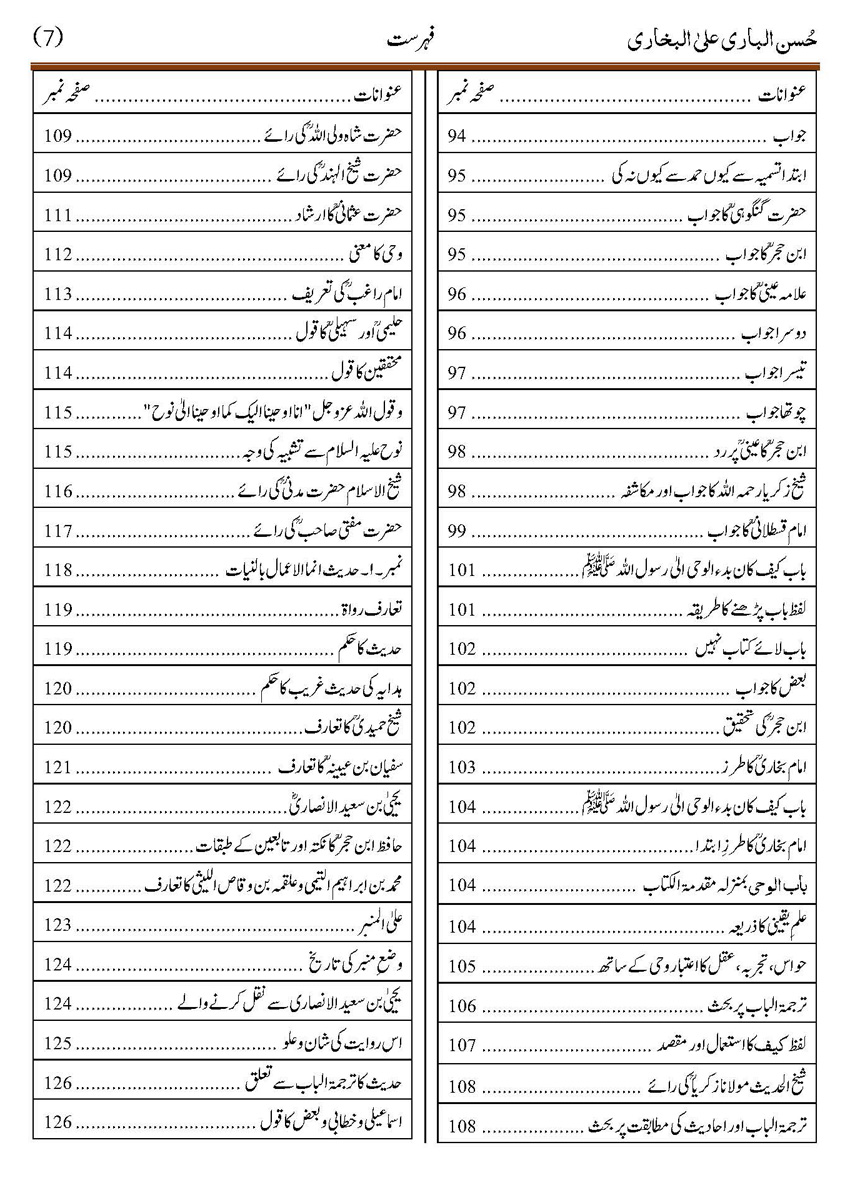 حُسن الباری علیٰ البخاری فہرست (7)
عنوانات ............................................ صفحہ نمبر
جواب .................................................... 94
ابتدا تسمیہ سے کیوں حمد سے کیوں نہ کی ........................ 95
حضرت گنگوہیؒ کا جواب ..................................... 95
ابن حجرؒ کا جواب ........................................... 95
علامہ عینیؒ کا جواب ........................................ 96
دوسرا جواب .............................................. 96
تیسرا جواب ............................................... 97
چوتھا جواب ............................................... 97
ابن حجرؒ کا عینیؒ پر رد ....................................... 98
شیخ زکریا رحمہ اللہ کا جواب اور مکاشفہ ....................... 98
امام قسطلانیؒ کا جواب ....................................... 99
باب کیف کان بدء الوحی الیٰ رسول اللہ ﷺ ................. 101
لفظ باب پڑھنے کا طریقہ ................................... 101
باب لائے کتاب نہیں .................................... 102
بعض کا جواب ............................................ 102
ابن حجرؒ کی تحقیق .......................................... 102
امام بخاریؒ کا طرز .......................................... 103
باب کیف کان بدء الوحی الیٰ رسول اللہ ﷺ ................. 104
امام بخاریؒ کا طرزِ ابتدا ..................................... 104
باب الوحی بمنزلہ مقدمۃ الکتاب ........................... 104
علم یقینی کا ذریعہ .......................................... 104
حواس، تجربہ، عقل کا اعتبار وحی کے ساتھ .................... 105
ترجمۃ الباب پر بحث ....................................... 106
لفظ کیف کا استعمال اور مقصد .............................. 107
شیخ الحدیث مولانا زکریاؒ کی رائے ........................... 108
ترجمۃ الباب اور احادیث کی مطابقت پر بحث .................. 108
عنوانات ............................................ صفحہ نمبر
حضرت شاہ ولی اللہؒ کی رائے ................................ 109
حضرت شیخ الہندؒ کی رائے .................................. 109
حضرت عثمانیؒ کا ارشاد ...................................... 111
وحی کا معنی ............................................... 112
امام راغبؒ کی تعریف ...................................... 113
حلیمیؒ اور سہیلیؒ کا قول ..................................... 114
محققین کا قول ............................................. 114
وقول اللہ عزوجل "انا اوحینا الیک کما اوحینا الیٰ نوح" ............ 115
نوح علیہ السلام سے تشبیہ کی وجہ ............................. 115
شیخ الاسلام حضرت مدنیؒ کی رائے .......................... 116
حضرت مفتی صاحبؒ کی رائے ............................... 117
نمبر۔۱۔ حدیث انما الاعمال بالنیات ......................... 118
تعارف رواۃ .............................................. 119
حدیث کا حکم .............................................. 119
ہدایہ کی حدیث غریب کا حکم ................................ 120
شیخ حمیدیؒ کا تعارف ........................................ 120
سفیان بن عیینہؒ کا تعارف ................................... 121
یحییٰ بن سعید الانصاریؒ ...................................... 122
حافظ ابن حجرؒ کا نکتہ اور تابعین کے طبقات ..................... 122
محمد بن ابراہیم التیمی وعلقمہ بن وقاص اللیثی کا تعارف ............. 122
علیٰ المنبر .................................................. 123
وضعِ منبر کی تاریخ ......................................... 124
یحییٰ بن سعید الانصاری سے نقل کرنے والے ................... 124
اس روایت کی شان وعلو .................................... 125
حدیث کا ترجمۃ الباب سے تعلق ............................. 126
اسماعیلی وخطابی وبعض کا قول ............................... 126